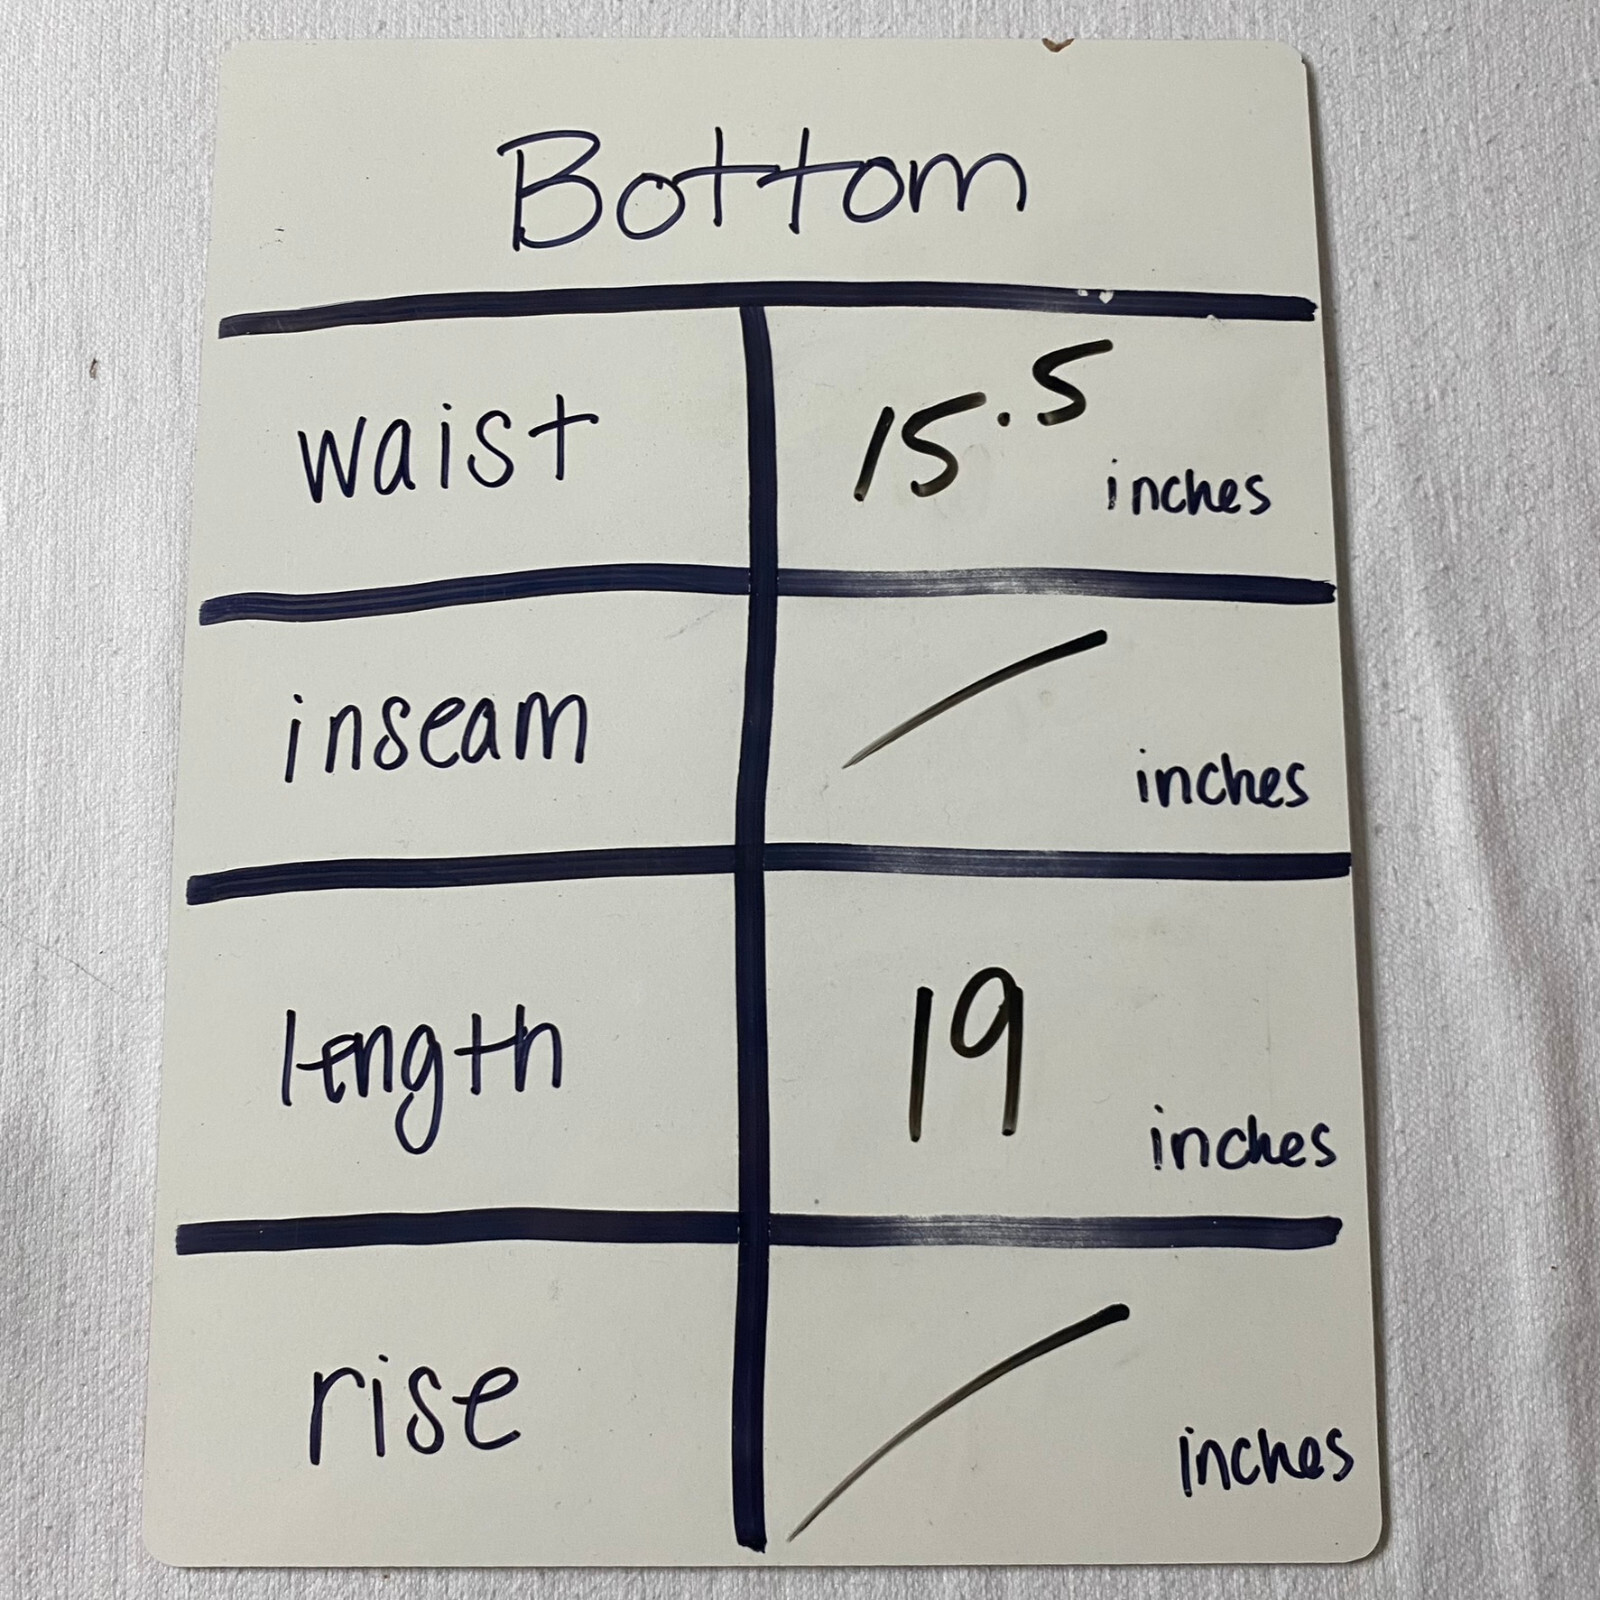 Bottom
waist 15.5 inches
inseam / inches
length 19 inches
rise / inches